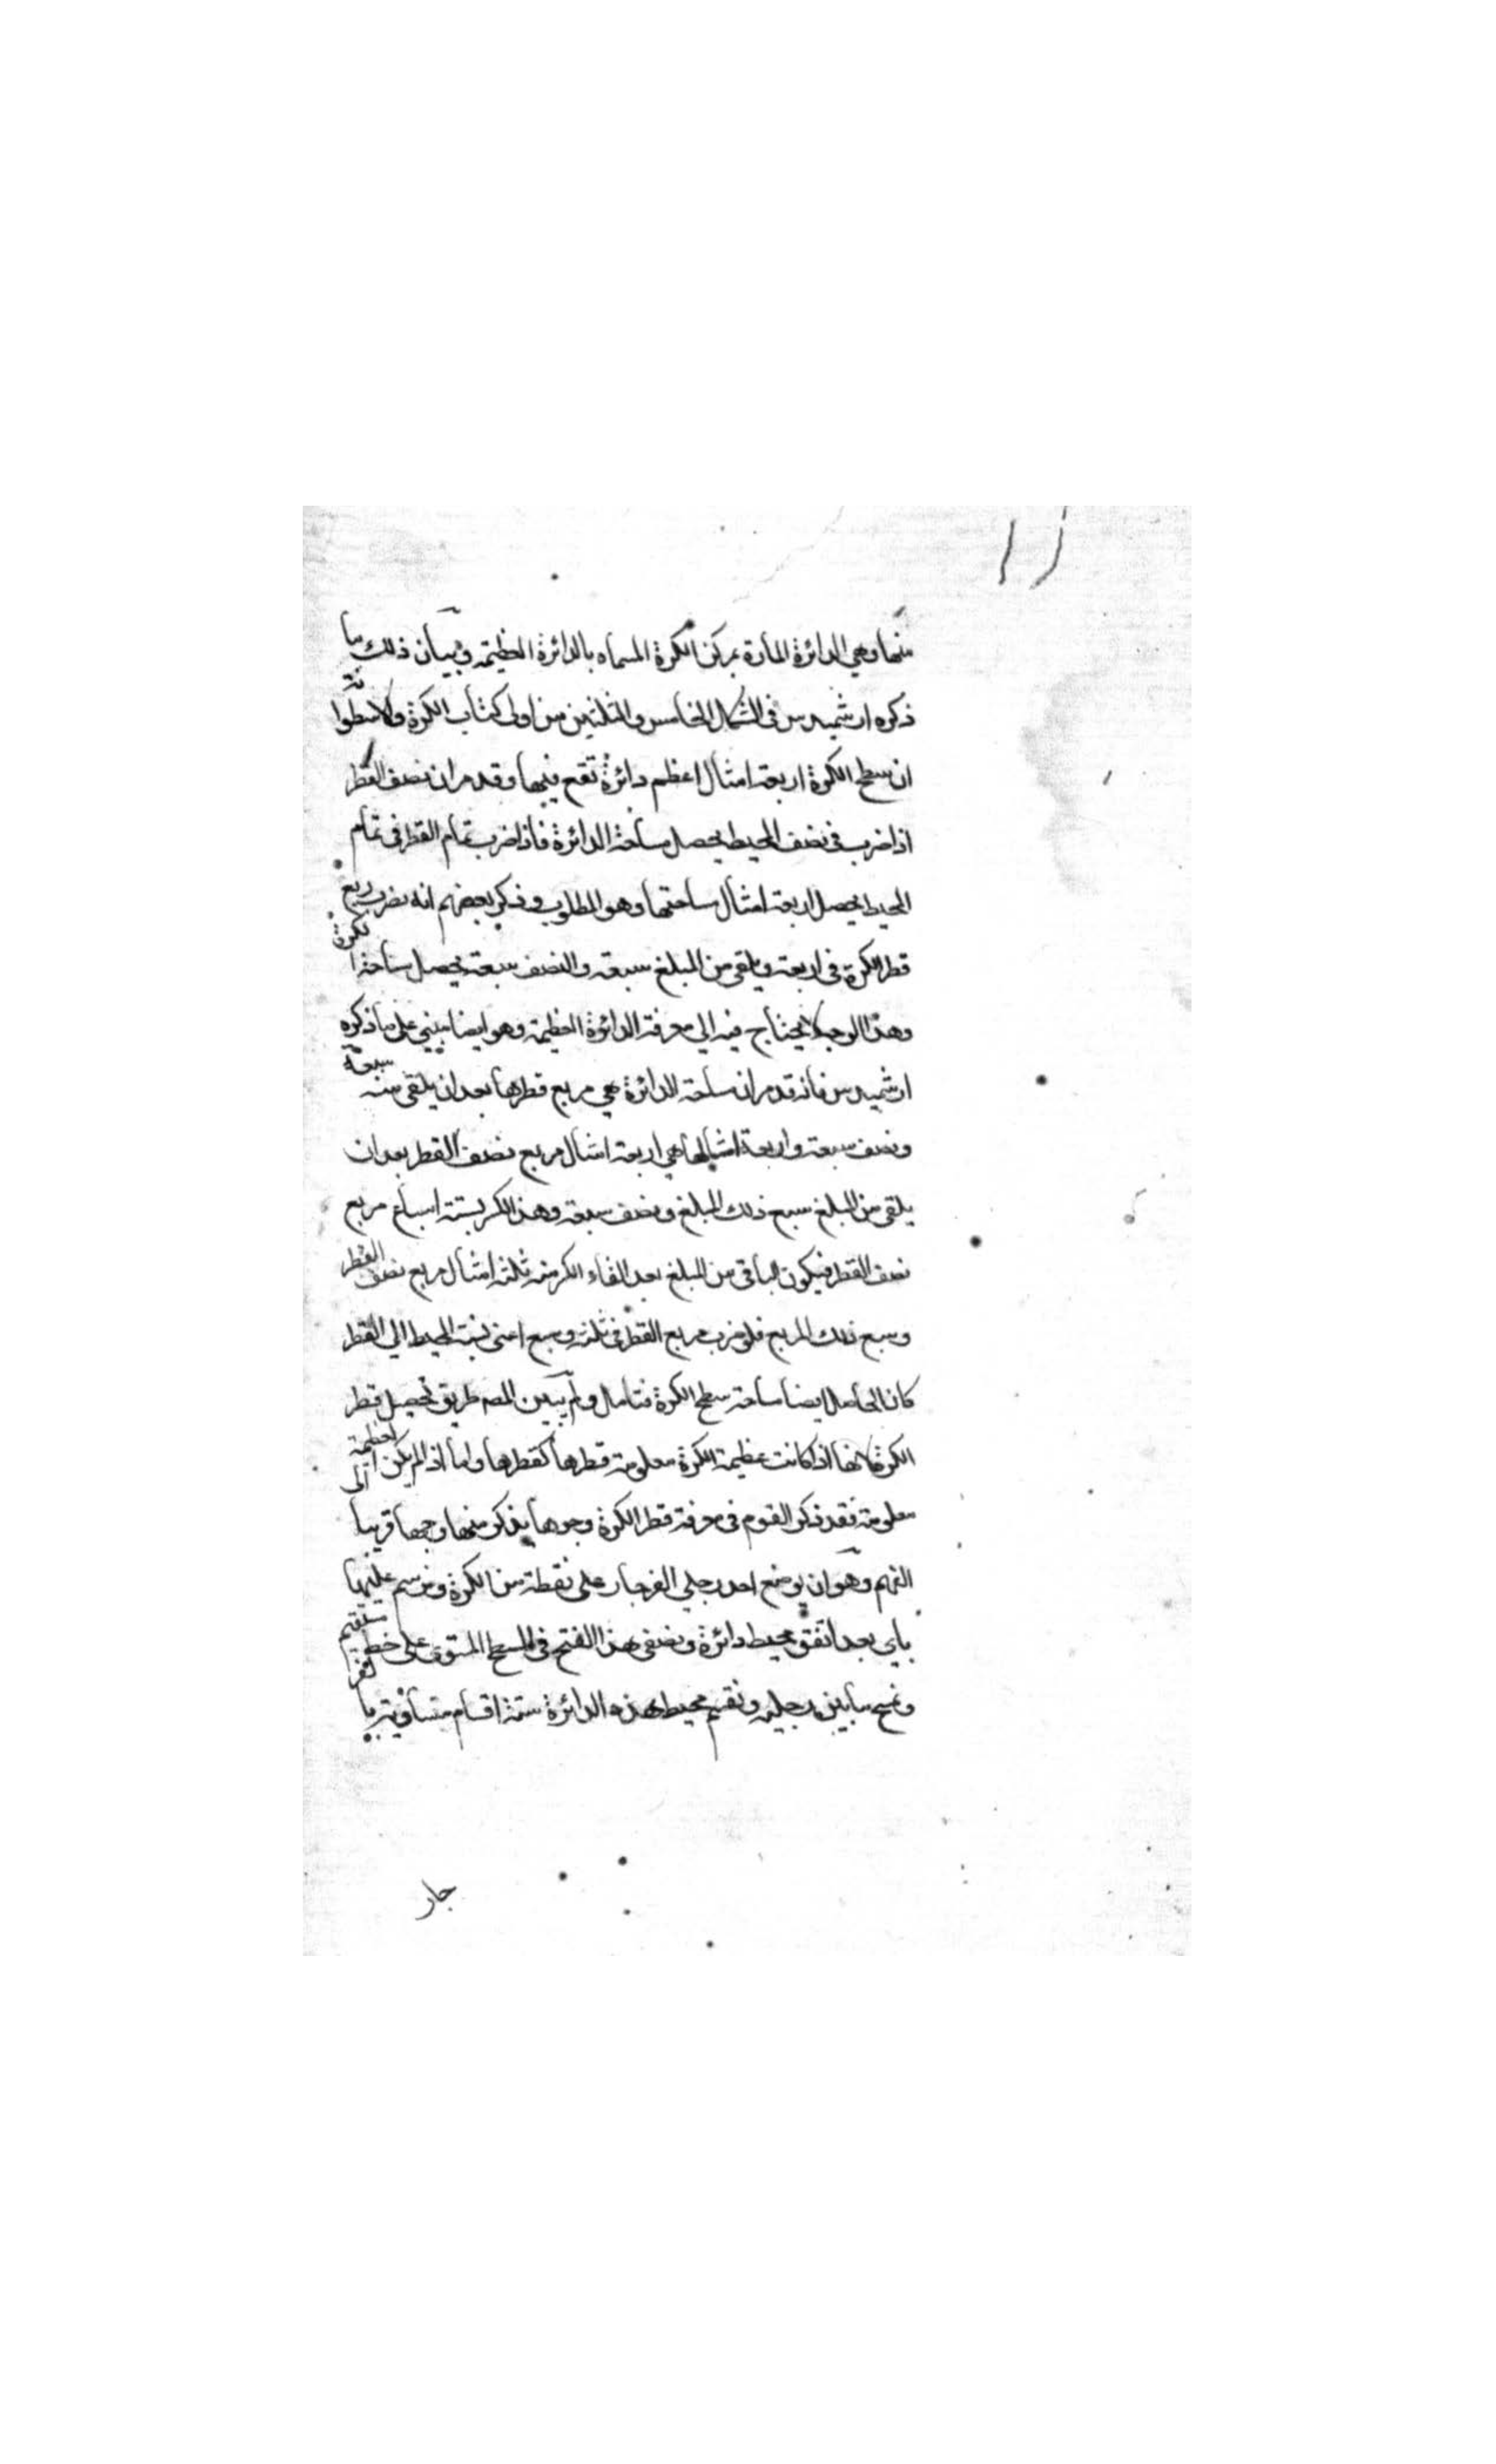 منها وهي الدائرة المارة بمركز الكرة المسماه بالدائرة العظيمة وبيان ذلك ما
ذكره ارشميدس في الشكل الخامس والثلثين من اولى كتاب الكرة والاسطوانة
ان سطح الكرة اربعة امثال اعظم دائرة تقع فيها وقد مر ان نصف القطر
اذا ضرب في نصف المحيط يحصل مساحة الدائرة فاذا ضرب تمام القطر في تمام
المحيط يحصل اربعة امثال مساحتها وهو المطلوب وذكر بعضهم انه يضرب مربع
قطر الكرة في اربعة ويلقى من المبلغ سبعه والنصف سبعه يحصل مساحة الكرة
وهذا الوجه لا يحتاج فيه الي معرفة الدائرة العظيمة وهو ايضا مبني على ما ذكره
ارشميدس فانه قد مر ان مساحة الدائرة هي مربع قطرها بعد ان يلقى منه سبعه
ونصف سبعه واربعة امثالها هي اربعة امثال مربع نصف القطر بعد ان
يلقى من المبلغ سبع ذلك المبلغ ونصف سبعه وهذا الكسر ستة اسباع مربع
نصف القطر فيكون الباقي من المبلغ بعد القاء الكسر منه ثلثة امثال مربع نصف القطر
وسبع ذلك المربع فلو ضرب مربع القطر في ثلثة وسبع اعنى نسبة المحيط الي القطر
كان الحاصل ايضا مساحة سطح الكرة فتامل ولم يبين المصـ طريق تحصيل قطر
الكرة لانها اذا كانت عظيمة الكرة معلومة قطرها كقطرها واما اذا لم يكن العظيمة
معلومة فقد ذكر القوم في معرفة قطر الكرة وجوها نذكر منها وجها قريبا الى
الفهم وهو ان يوضع احد رجلي الفرجار على نقطة من الكرة ونرسم عليها
باي بعد اتفق محيط دائرة ونضع هذا الفتح في السطح المستوى على خط مستقيم
ونمسح ما بين رجليه ونقسم محيط هذه الدائرة ستة اقسام متساوية بالفر
جار